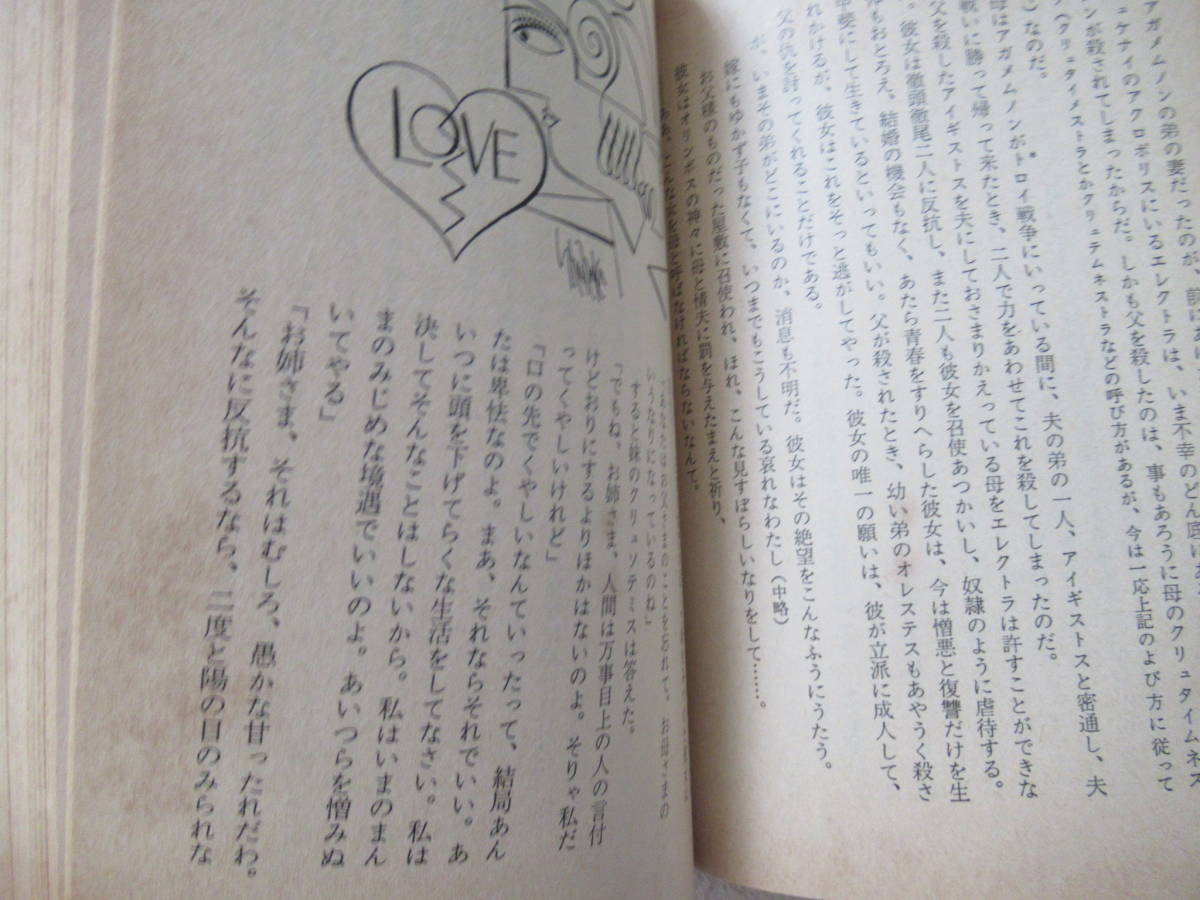 アガメムノンの弟の妻だったのが、
ュケナイのアクロポリスにいるエレクトラは、いま不幸のどん底に
ンが殺されてしまったからだ。しかも父を殺したのは、事もあろうに母のクリュタイムネス
（クリュタイメストラとかクリュテムネストラなどの呼び方があるが、今は一応上記のよび方に従って
）なのだ。
母はアガメムノンがトロイ戦争にいっている間に、夫の弟の一人、アイギストスと密通し、夫
戦いに勝って帰って来たとき、二人で力をあわせてこれを殺してしまったのだ。
父を殺したアイギストスを夫にしておさまりかえっている母をエレクトラは許すことができな
。彼女は徹頭徹尾二人に反抗し、また二人も彼女を召使あつかいし、奴隷のように虐待する。
もおとろえ、結婚の機会もなく、あたら青春をすりへらした彼女は、今は憎悪と復讐だけを生
甲斐にして生きているといってもいい。父が殺されたとき、幼い弟のオレステスもあやうく殺さ
れかけるが、彼女はこれをそっと逃がしてやった。彼女の唯一の願いは、彼が立派に成人して、
父の仇を討ってくれることだけである。
が、いまその弟がどこにいるのか、消息も不明だ。彼女はその絶望をこんなふうにうたう。
嫁にもゆかず子もなくて、いつまでもこうしている哀れなわたし（中略）
お父様のものだった屋敷に召使われ、ほれ、こんな見すぼらしいなりをして……。
彼女はオリンポスの神々に母と情夫に罰を与えたまえと祈り、
ああ、こんな女を母と呼ばなければならないなんて。
LOVE
てあなたはお父さまのことを忘れて、お母さまの
いうなりになっているのね」
すると妹のクリュソテミスは答えた。
「でもね、お姉さま、人間は万事目上の人の言付
けどおりにするよりほかはないのよ。そりゃ私だ
ってくやしいけれど」
「口の先でくやしいなんていったって、結局あん
たは卑怯なのよ。まあ、それならそれでいい。あ
いつに頭を下げてらくな生活をしてなさい。私は
決してそんなことはしないから。私はいまのまん
まのみじめな境遇でいいのよ。あいつらを憎みぬ
いてやる」
「お姉さま、それはむしろ、愚かな甘ったれだわ。
そんなに反抗するなら、二度と陽の目のみられな